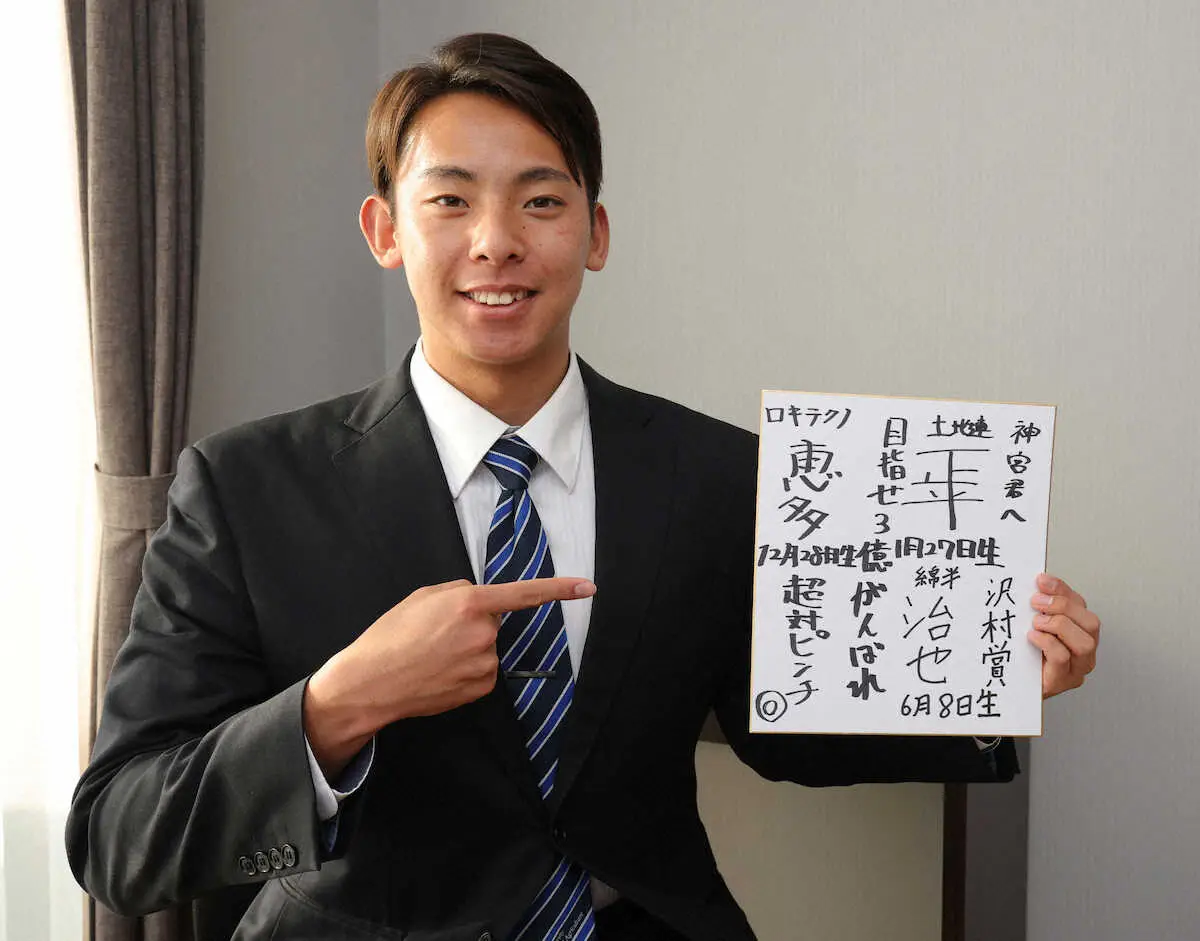 神宮君へ
沢村賞
土地連
平
1月27日生
綿半
治也
6月8日生
目指せ3億がんばれ
ロキテクノ
恵多
12月28日生
超対ピンチ
◎
Agriculture